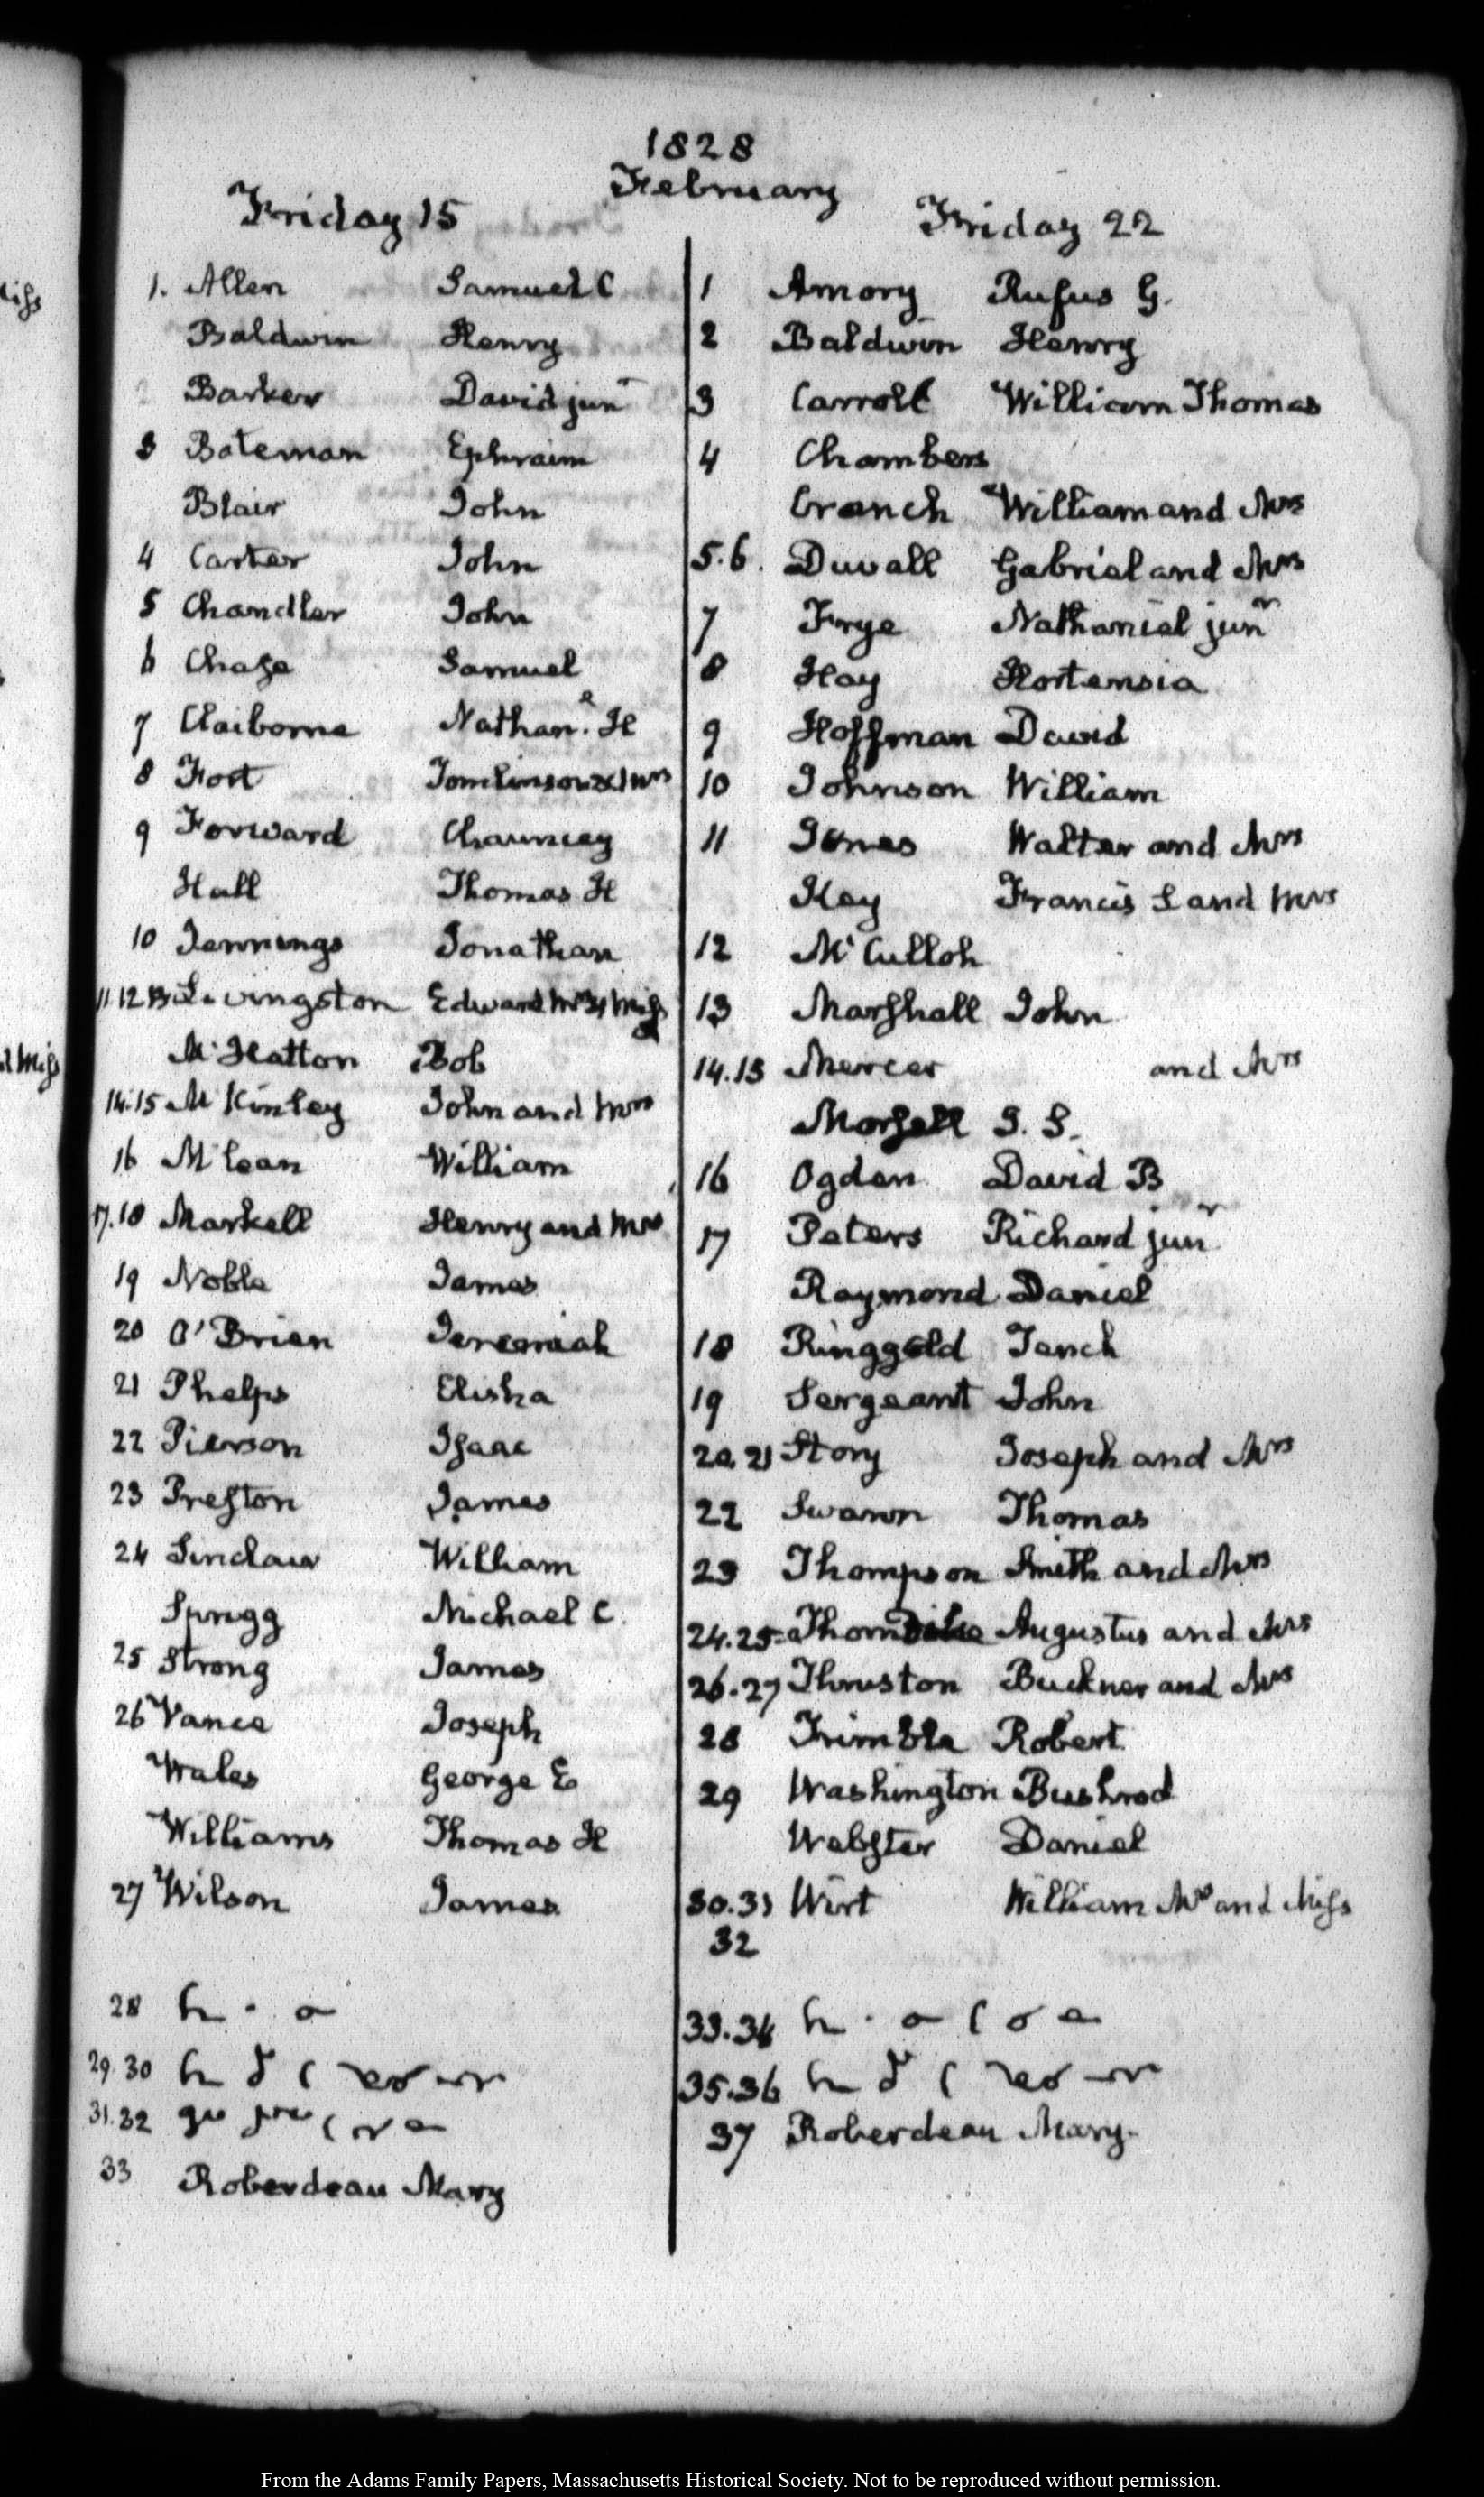 1828
February
Friday 15
1. Allen Samuel C
Baldwin Henry
Barker David junr
3 Bateman Ephraim
Blair John
4 Carter John
5 Chandler John
6 Chase Samuel
7 Claiborne Nathanl. H
8 Fort Tomlinson & Mrs
9 Forward Chauncey
Hall Thomas H
10 Jennings Jonathan
11 12 13 Livingston Edward Mrs & Miss
McHatton Rob
14.15 McKinley John and Mrs
16 McLean William
17.18 Markell Henry and Mrs
19 Noble James
20 O'Brien Jeremiah
21 Phelps Elisha
22 Pierson Isaac
23 Preston James
24 Sinclair William
Sprigg Michael C.
25 Strong James
26 Vance Joseph
Wales George E
Williams Thomas H
27 Wilson James
28
29.30
31.32
33 Roberdeau Mary
Friday 22
1 Amory Rufus G.
2 Baldwin Henry
3 Carroll William Thomas
4 Chambers
Cranch William and Mrs
5.6. Duvall Gabriel and Mrs
7 Frye Nathaniel junr
8 Hay Hortensia
9 Hoffman David
10 Johnson William
11 Jones Walter and Mrs
Key Francis S and Mrs
12 McCulloh
13 Marshall John
14.15 Mercer and Mrs
Morsell J. S.
16 Ogden David B
17 Peters Richard junr
Raymond Daniel
18 Ringgold Tench
19 Sergeant John
20.21 Story Joseph and Mrs
22 Swann Thomas
23 Thompson Smith and Mrs
24.25 Thorndike Augustus and Mrs
26.27 Thruston Buckner and Mrs
28 Trimble Robert
29 Washington Bushrod
Webster Daniel
30.31 Wirt William Mrs and Miss
32
33.34
35.36
37 Roberdeau Mary.
From the Adams Family Papers, Massachusetts Historical Society. Not to be reproduced without permission.